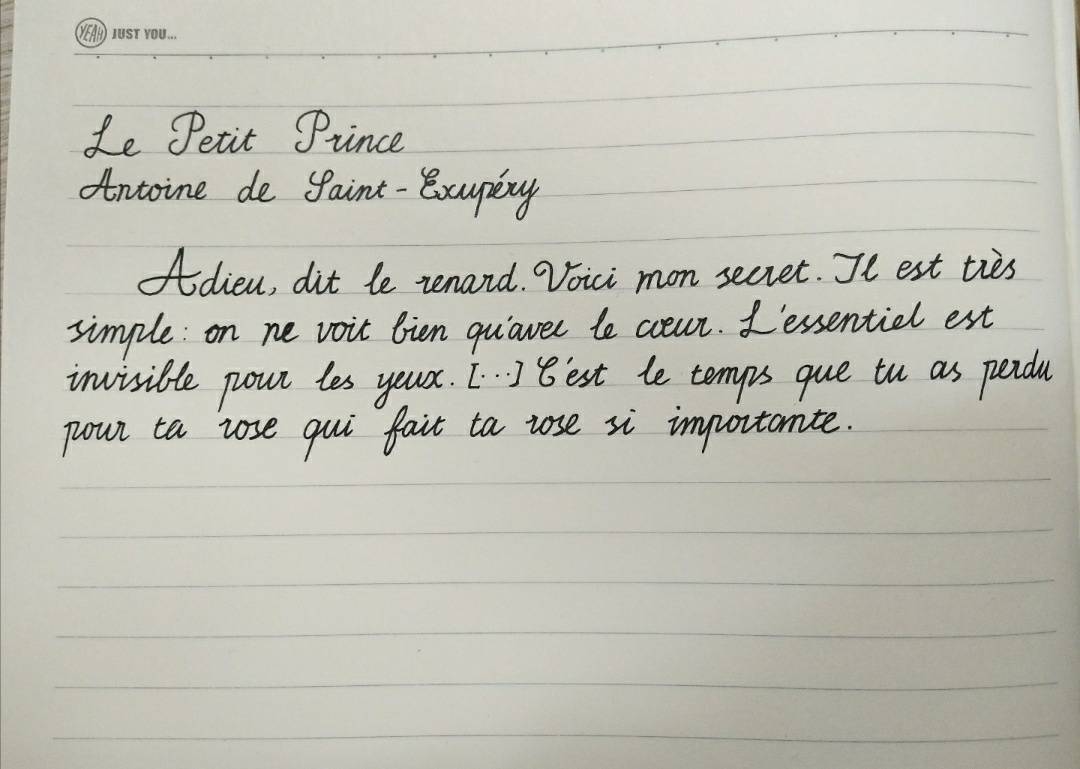 YEAH JUST YOU...
Le Petit Prince
Antoine de Saint-Exupéry
Adieu, dit le renard. Voici mon secret. Il est très
simple: on ne voit bien qu'avec le cœur. L'essentiel est
invisible pour les yeux. [...] C'est le temps que tu as perdu
pour ta rose qui fait ta rose si importante.